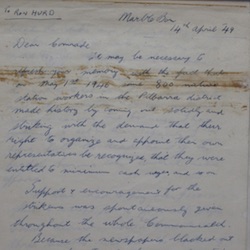 To Ron HURD
Marble Bar
14th April /49
Dear Comrade
It may be necessary to
your memory with the fact that
on May 1st 1946 some 800 native
station workers in the Pilbarra district
made history by coming out solidly and
striking with the demand that their
right to organize and appoint their own
representatives be recognized, that they were
entitled to minimum cash wages and so on
Support & encouragement for the
strikers was spontaneously given
throughout the whole Commonwealth.
Because the newspapers blacked out